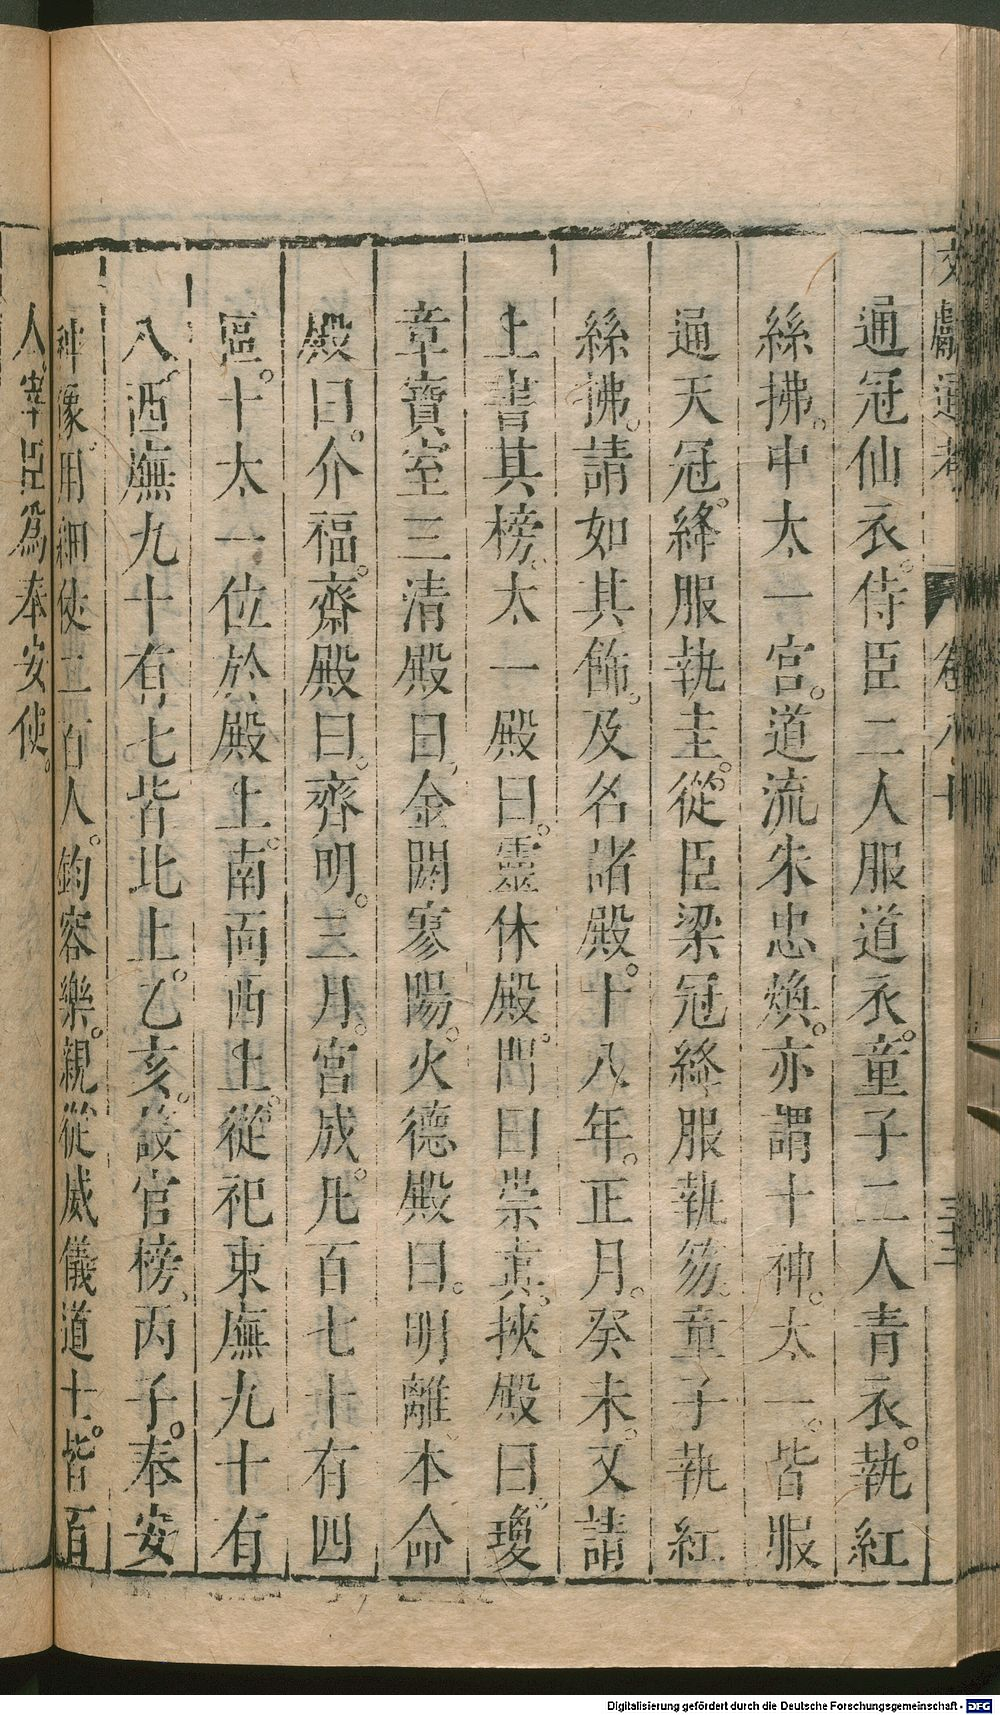 文獻通考 卷八十 三十二
通冠仙衣。侍臣二人服道衣。童子二人青衣。執紅
絲拂。中太一宮。道流朱忠煥。亦謂十神。太一。皆服
通天冠。絳服執圭。從臣梁冠絳服執笏。童子執紅
絲拂。請如其飾。及名諸殿。十八年。正月。癸未。又請
上書其榜。太一殿曰。靈休殿。門曰崇真。挾殿曰。瓊
章寶室三清殿曰。金闕寥陽。火德殿曰。明離。本命
殿曰。介福。齋殿曰。齊明。三月。宮成。凡百七十有四
區。十太一位於殿上。南面西上。從祀東廡九十有
八。西廡九十有七皆北上。乙亥。設官榜。丙子。奉安
神像。用細仗二百人。鈞容樂。親從威儀道士。皆百
人。宰臣為奉安使。
Digitalisierung gefördert durch die Deutsche Forschungsgemeinschaft - DFG